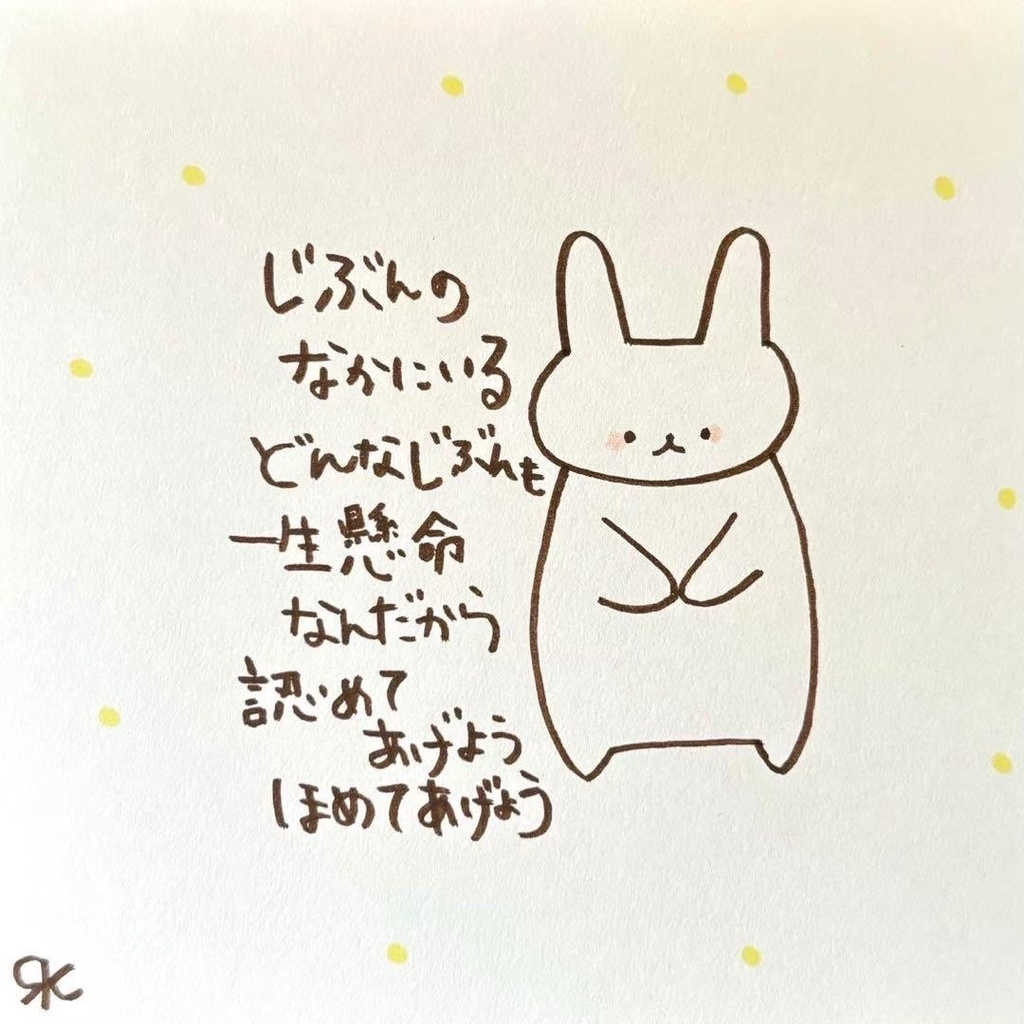 じぶんの
なかにいる
どんなじぶんも
一生懸命
なんだから
認めて
あげよう
ほめてあげよう